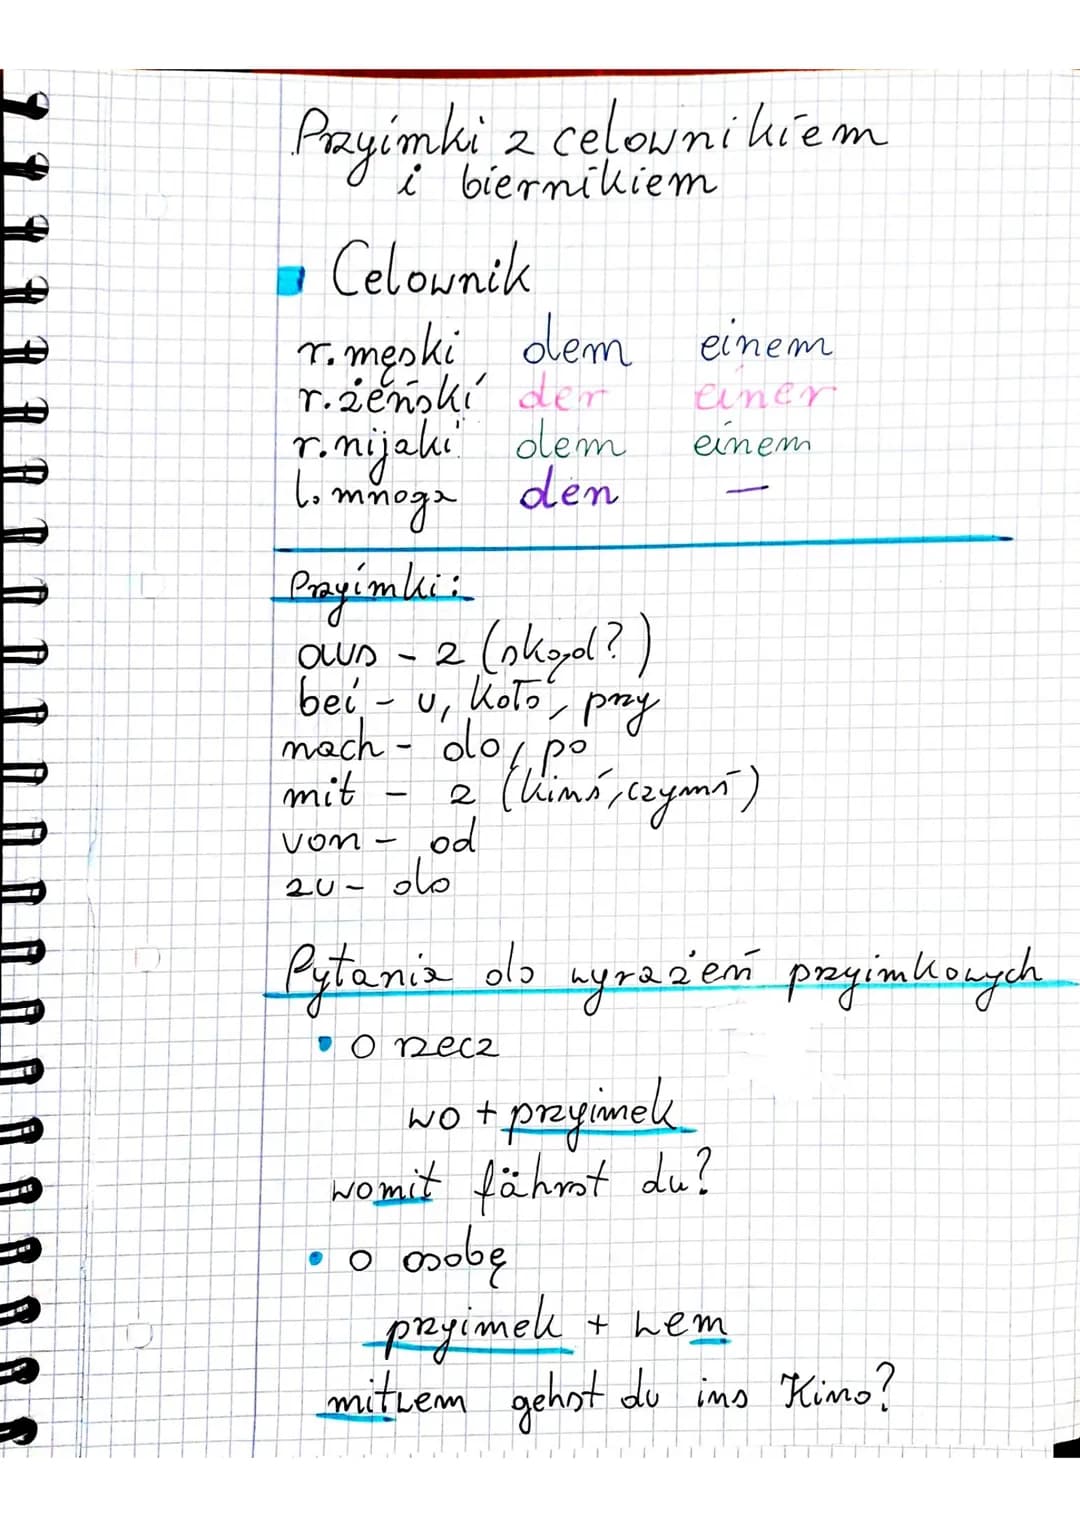 Przyimki z celownikiem
i biernikiem
Celownik
r. męski dem einem
r. żeński der einer
r. nijaki dem einem
l. mnoga den —
Przyimki:
aus - z (skąd?)
bei - u, koło, przy
nach - do, po
mit - z (kimś, czymś)
von - od
zu - do
Pytania do wyrażeń przyimkowych
• o rzecz
wo + przyimek
womit fährst du?
• o osobę
przyimek + wem
mitwem gehst du ins Kino?